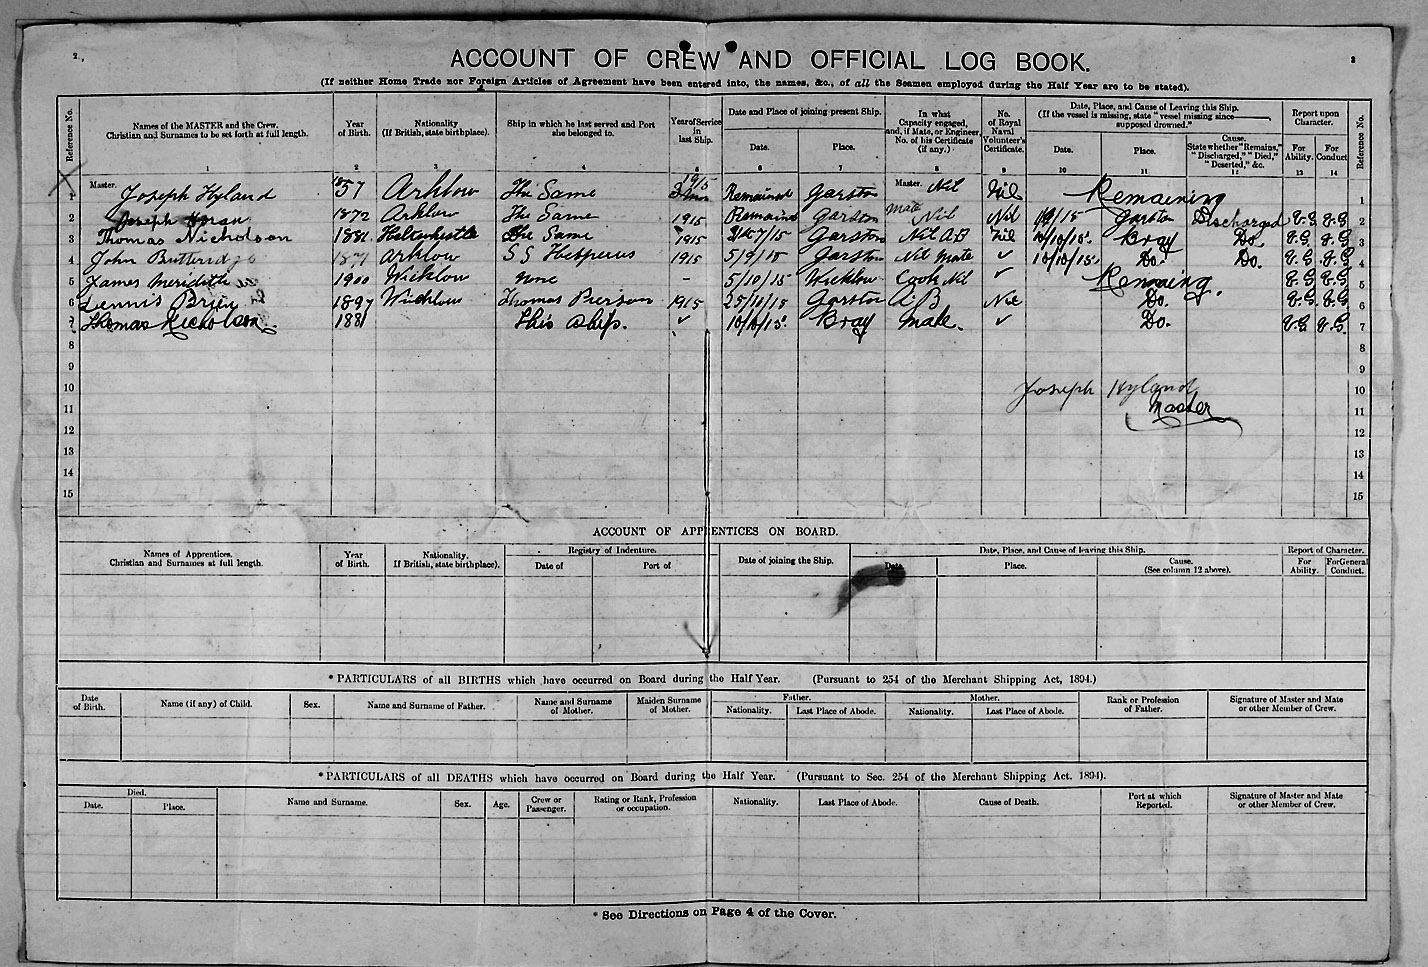 2.
3
ACCOUNT OF CREW AND OFFICIAL LOG BOOK.
(If neither Home Trade nor Foreign Articles of Agreement have been entered into, the names, &c., of all the Seamen employed during the Half Year are to be stated).
Reference No. Names of the MASTER and the Crew. Christian and Surnames to be set forth at full length. Year of Birth. Nationality (If British, state birthplace). Ship in which he last served and Port she belonged to. Year of Service in last Ship. Date and Place of joining present Ship. Date. Place. In what Capacity engaged, and, if Mate, or Engineer, No. of his Certificate (if any.) No. of Royal Naval Volunteer's Certificate. Date, Place, and Cause of Leaving this Ship. (If the vessel is missing, state "vessel missing since supposed drowned." Date. Place. Cause. State whether "Remains," "Discharged," "Died," "Deserted," &c. Report upon Character. For Ability. For Conduct Reference No.
1 2 3 4 5 6 7 8 9 10 11 12 13 14
1 Master. Joseph Hyland 1857 Arklow The Same 1915 Remained Garston Master. Nil Nil Remaining 1
2 Joseph 1872 Arklow The Same 1915 Remained Garston Mate Nil Nil Garston Discharged V.G V.G 2
3 Thomas Nicholson 1881 Haltwhistle The Same 1915 Garston Nil A.B Nil 10/10/15. Bray Do. V.G V.G 3
4 John Butteridge 1871 Arklow SS Hesperus 1915 5/9/15 Garston Nil Mate ✓ 10/10/15. Do. Do. V.G V.G 4
5 James Meridith 1900 Wicklow none - 5/10/15 Wicklow Cook Nil ✓ Remaining. V.G V.G 5
6 Dennis Brien 1897 Wicklow Thomas Pierson 1915 25/10/15 Garston A B Nil Do. V.G V.G 6
7 Thomas Nicholson. 1881 This Ship. ✓ 10/10/15. Bray Mate. ✓ Do. V.G V.G. 7
8 8
9 9
10 Joseph Hyland 10
11 Master 11
12 12
13 13
14 14
15 15
ACCOUNT OF APPRENTICES ON BOARD.
Names of Apprentices. Christian and Surnames at full length. Year of Birth. Nationality. If British, state birthplace). Registry of Indenture. Date of Port of Date of joining the Ship. Date, Place, and Cause of leaving this Ship. Date. Place. Cause. (See column 12 above). Report of Character. For Ability. For General Conduct.
* PARTICULARS of all BIRTHS which have occurred on Board during the Half Year. (Pursuant to 254 of the Merchant Shipping Act, 1894.)
Date of Birth. Name (if any) of Child. Sex. Name and Surname of Father. Name and Surname of Mother. Maiden Surname of Mother. Father. Nationality. Last Place of Abode. Mother. Nationality. Last Place of Abode. Rank or Profession of Father. Signature of Master and Mate or other Member of Crew.
* PARTICULARS of all DEATHS which have occurred on Board during the Half Year. (Pursuant to Sec. 254 of the Merchant Shipping Act. 1894).
Died. Date. Place. Name and Surname. Sex. Age. Crew or Passenger. Rating or Rank, Profession or occupation. Nationality. Last Place of Abode. Cause of Death. Port at which Reported. Signature of Master and Mate or other Member of Crew.
* See Directions on Page 4 of the Cover.